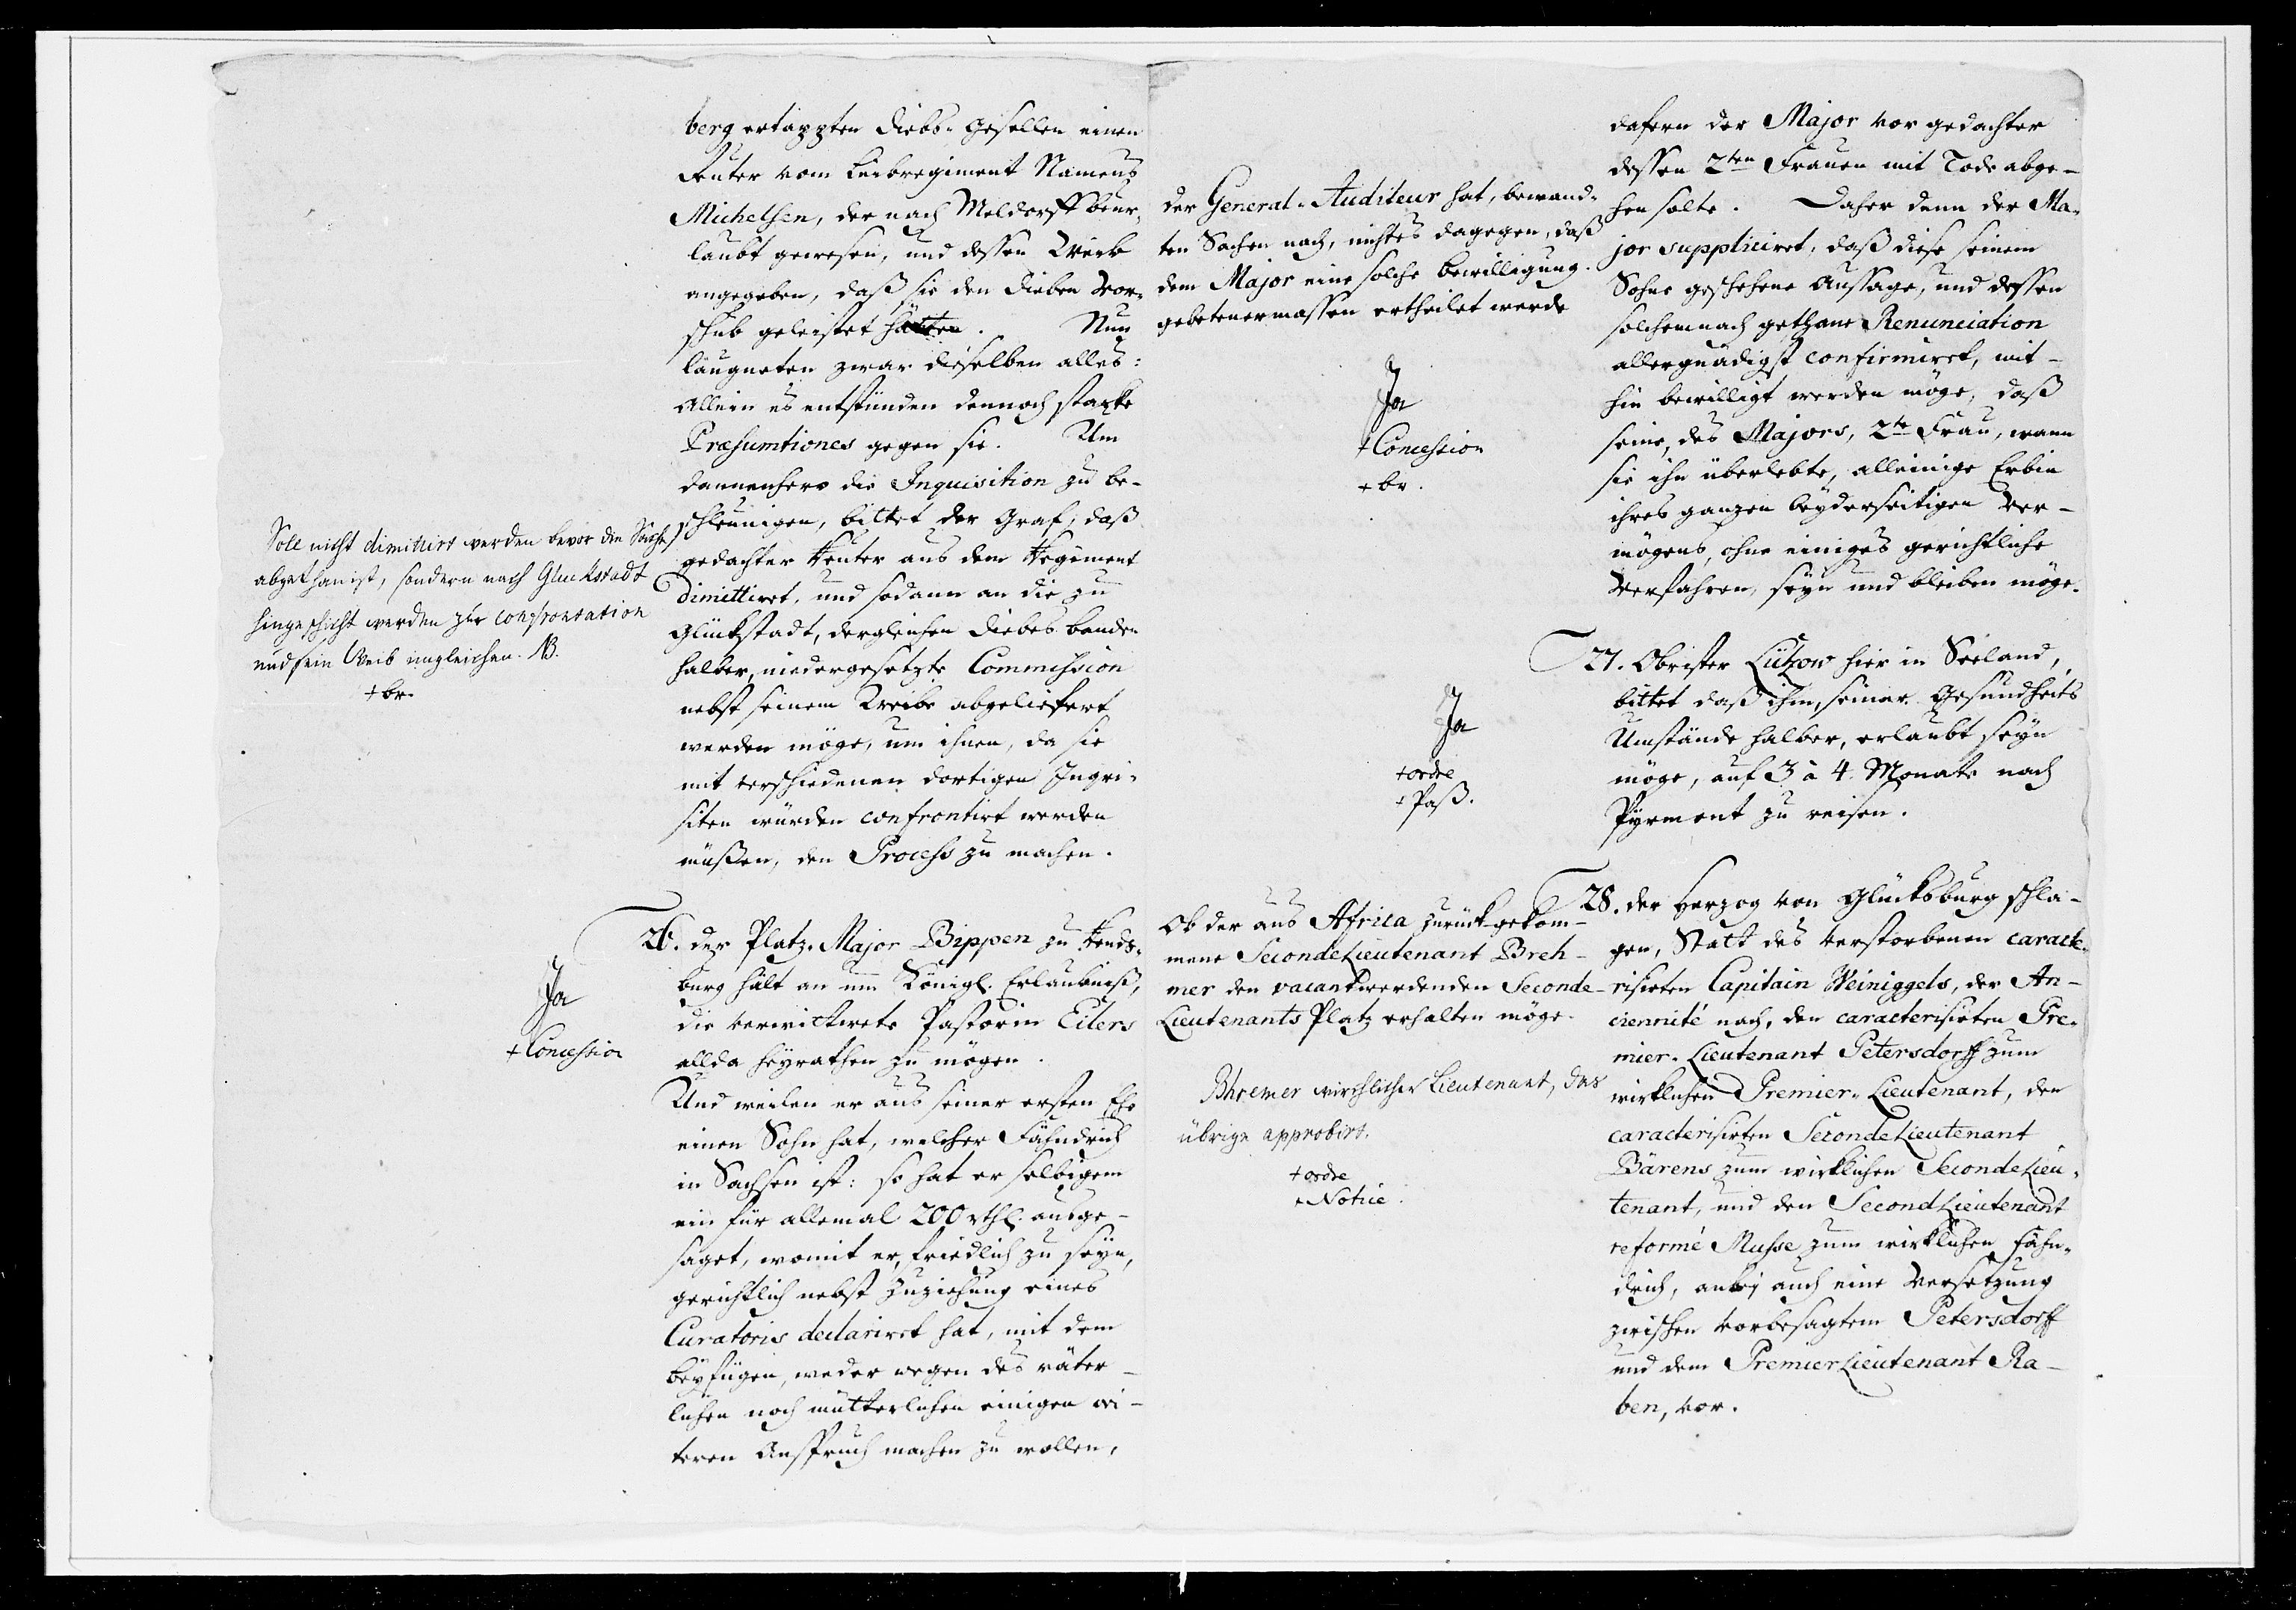 berg ertappten Diebs-Gesellen einen
Reuter vom Leibregiment Namens
Michelsen, der nach Meldorff beur-
laubt gewesen, und dessen Weib
angegeben, daß sie den Dieben Vor-
schub geleistet hätten. Nun
läugneten zwar dieselben alles:
Allein es entstünden dennoch starke
Præsumtiones gegen sie. Um
dannenhero die Inquisition zu be-
schleunigen, bittet der Graf, daß
gedachter Reuter aus dem Regiment
dimittiret, und sodann an die zu
Glückstadt, dergleichen Diebes banden
halber, niedergesetzte Commission
nebst seinem Weibe abgeliefert
werden möge, um ihnen, da sie
mit verschiedenen dortigen Inqui-
siten würden confrontirt werden
müßen, den Process zu machen.
Soll nicht dimittirt werden bevor die Sache
abgethan ist, sondern nach Gluckstadt
hingeschickt werden zur confrontation
und sein Weib imgleichen. NB.
+ br.
26. der Platz-Major Bippen zu Rends-
burg hält an um Königl. Erlaubniß,
die verwittwete Pastorin Eilers
allda heyrathen zu mögen.
Und weilen er aus seiner ersten Ehe
einen Sohn hat, welcher Fähndrich
in Sachsen ist: so hat er selbigem
ein für allemal 200 rthl. ausge-
saget, womit er, friedlich zu seyn,
gerichtlich nebst Zuziehung eines
Curatoris declariret hat, mit dem
beyfügen, weder wegen des väter-
lichen noch mütterlichen einigen wei-
teren Anspruch machen zu wollen,
Ja
+ Concession
dafern der Major vor gedachter
dessen 2ten Frauen mit Tode abge-
hen solte. Daher denn der Ma-
jor suppliciret, daß diese seinem
Sohne geschehene Aussage, und dessen
solchemnach gethane Renunciation
allergnädigst confirmiret, mit-
hin bewilligt werden möge, daß
seine, des Majors, 2te Frau, wann
sie ihn überlebte, alleinige Erbin
ihres ganzen beyderseitigen Ver-
mögens, ohne einiges gerichtliche
Verfahren, seyn und bleiben möge.
der General-Auditeur hat, bewand-
ten Sachen nach, nichts dagegen, daß
dem Major eine solche Bewilligung
gebetenermassen ertheilet werde
Ja
+ Concession
+ br.
27. Obrister Lützow hier in Seeland,
bittet daß ihm, seiner Gesundheits
Umstände halber, erlaubt seyn
möge, auf 3 à 4 Monate nach
Pyrmont zu reisen.
Ja
+ ordre
+ Paß.
28. der Herzog von Glücksburg schla-
gen, Statt des verstorbenen caracte-
risirten Capitain Weiniggels, der An-
ciennité nach, den caracterisirten Pre-
mier-Lieutenant Petersdorff zum
wirklichen Premier-Lieutenant, den
caracterisirten SecondeLieutenant
Bärens zum wirklichen SecondeLieu-
tenant, und den SecondLieutenant
reformé Musse zum wirklichen Fähn-
drich, anbey auch eine Versetzung
zwischen vorbesagtem Petersdorff
und dem PremierLieutenant Ra-
ben, vor.
Ob der aus Africa zurück gekom-
mene SecondeLieutenant Breh-
mer den vacantwerdenden Seconde-
Lieutenants Platz erhalten möge.
Bhremer wirchlicher Lieutenant, das
übrige approbirt.
+ ordre
+ Notice.